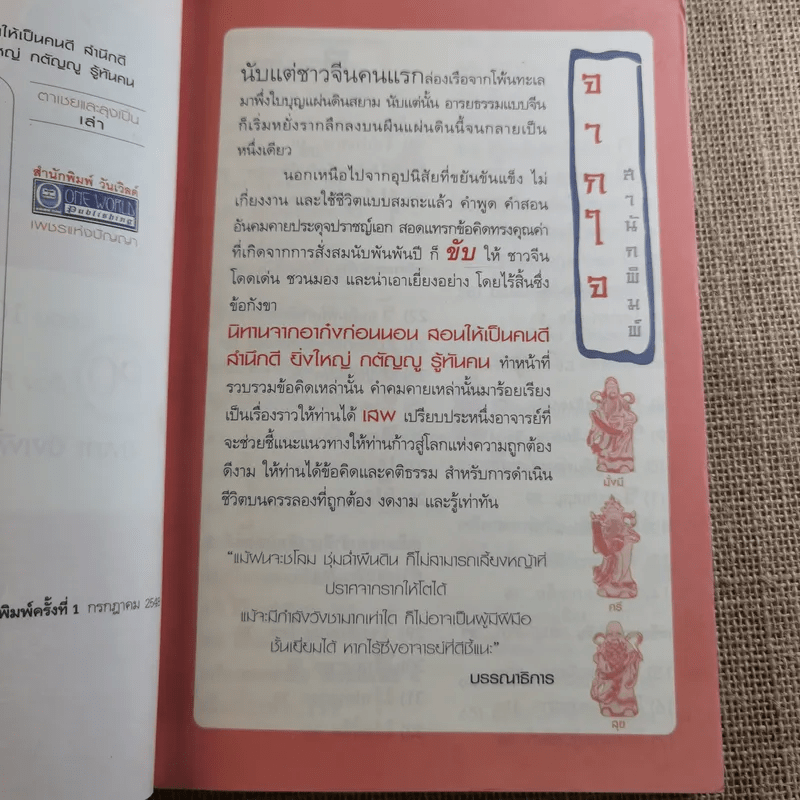 ให้เป็นคนดี สำนึกดี
กตัญญู รู้ทันคน
ตาเชยและลุงเป็น
เล่า
สำนักพิมพ์ วันเวิลด์
ONE WORLD
Publishing
เพชรแห่งปัญญา
พิมพ์ครั้งที่ 1 กรกฎาคม
นับแต่ชาวจีนคนแรกล่องเรือจากโพ้นทะเล
มาพึ่งใบบุญแผ่นดินสยาม นับแต่นั้น อารยธรรมแบบจีน
ก็เริ่มหยั่งรากลึกลงบนผืนแผ่นดินนี้จนกลายเป็น
หนึ่งเดียว
นอกเหนือไปจากอุปนิสัยที่ขยันขันแข็ง ไม่
เกี่ยงงาน และใช้ชีวิตแบบสมถะแล้ว คำพูด คำสอน
อันคมคายประดุจปราชญ์เอก สอดแทรกข้อคิดทรงคุณค่า
ที่เกิดจากการสั่งสมนับพันพันปี ก็ ขับ ให้ ชาวจีน
โดดเด่น ชวนมอง และน่าเอาเยี่ยงอย่าง โดยไร้สิ้นซึ่ง
ข้อกังขา
นิทานจากอาก๋งก่อนนอน สอนให้เป็นคนดี
สำนึกดี ยิ่งใหญ่ กตัญญู รู้ทันคน ทำหน้าที่
รวบรวมข้อคิดเหล่านั้น คำคมคายเหล่านั้นมาร้อยเรียง
เป็นเรื่องราวให้ท่านได้ เสพ เปรียบประหนึ่งอาจารย์ที่
จะช่วยชี้แนะแนวทางให้ท่านก้าวสู่โลกแห่งความถูกต้อง
ดีงาม ให้ท่านได้ข้อคิดและคติธรรม สำหรับการดำเนิน
ชีวิตบนครรลองที่ถูกต้อง งดงาม และรู้เท่าทัน
“แม้ฝนจะชโลม ชุ่มฉ่ำผืนดิน ก็ไม่สามารถเลี้ยงหญ้าที่
ปราศจากรากให้โตได้
แม้จะมีกำลังวังชามากเท่าใด ก็ไม่อาจเป็นผู้มีฝีมือ
ชั้นเยี่ยมได้ หากไร้ซึ่งอาจารย์ที่ดีชี้แนะ”
บรรณาธิการ
จากใจ
สำนักพิมพ์
มั่งมี
ศรี
สุข